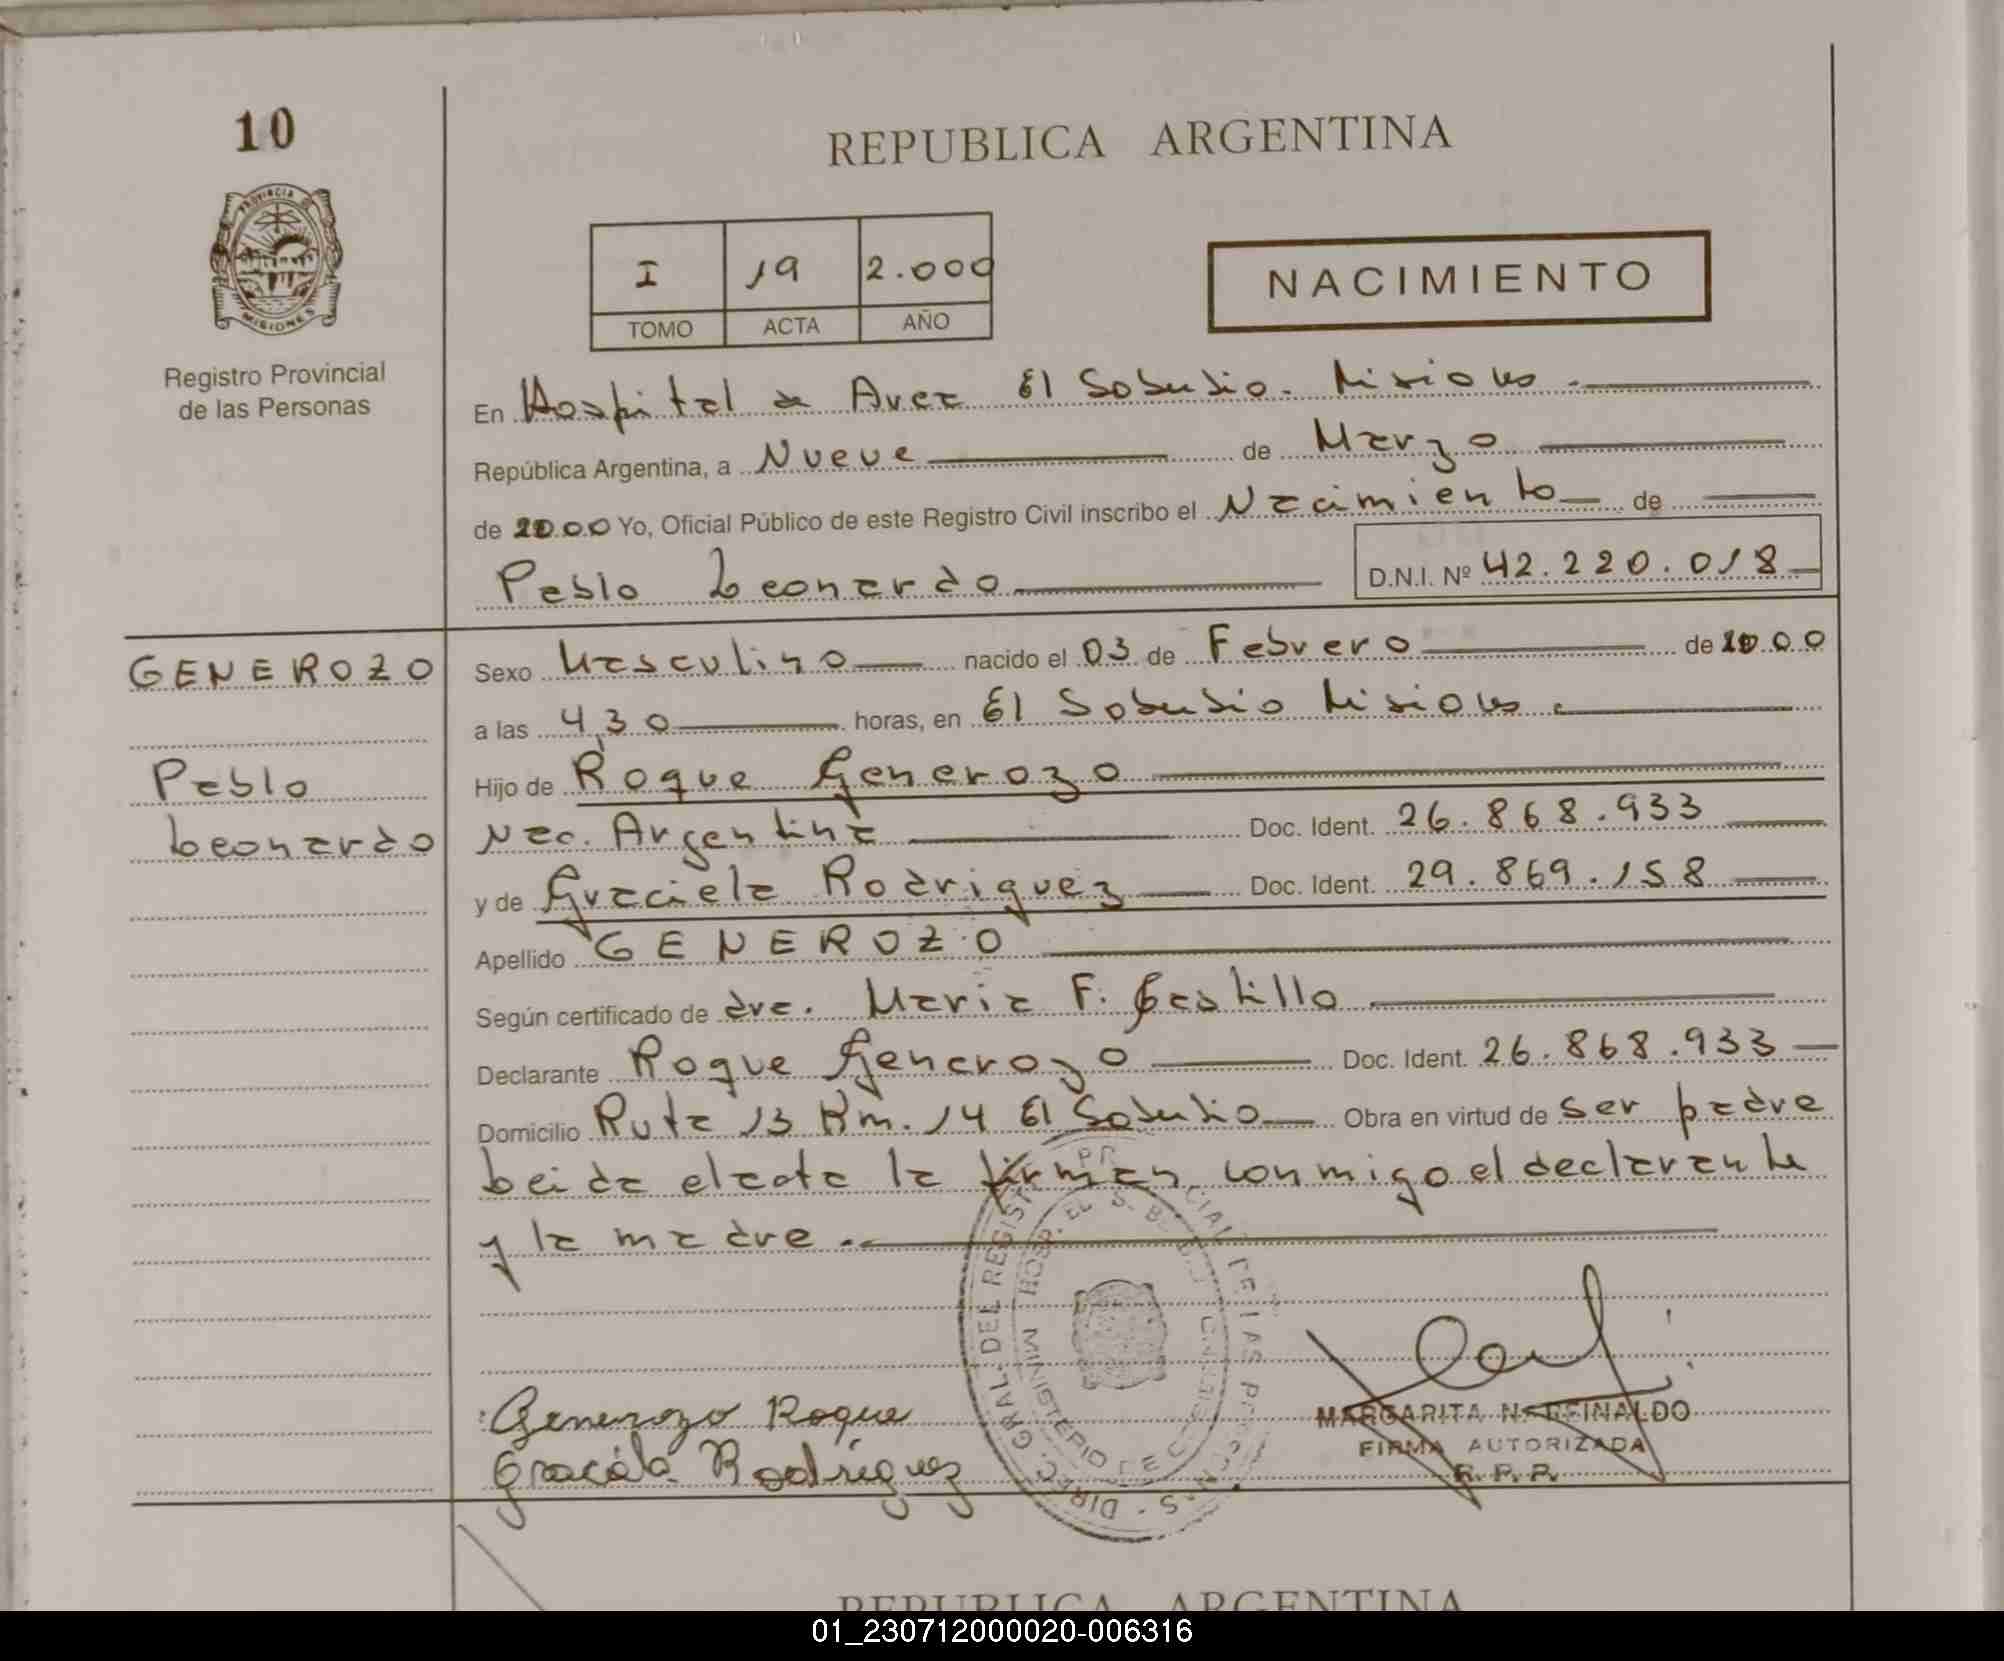 10
REPUBLICA ARGENTINA
PROVINCIA DE MISIONES
Registro Provincial
de las Personas
I 19 2.000
TOMO ACTA AÑO
NACIMIENTO
En Hospital de Area El Soberbio. Misiones.
República Argentina, a Nueve de Marzo
de 2000 Yo, Oficial Público de este Registro Civil inscribo el Nacimiento de
Pablo Leonardo D.N.I. Nº 42.220.018
GENEROZO
Pablo
Leonardo
Sexo Masculino nacido el 03 de Febrero de 2000
a las 4,30 horas, en El Soberbio Misiones.
Hijo de Roque Generozo
Nac. Argentina Doc. Ident. 26.868.933
y de Graciela Rodriguez Doc. Ident. 29.869.158
Apellido GENEROZO
Según certificado de dra. Maria F. Castillo
Declarante Roque Generozo Doc. Ident. 26.868.933
Domicilio Ruta 13 Km. 14 El Soberbio Obra en virtud de ser padre
Leida el acta la firman conmigo el declarante
y la madre.
Generozo Roque
Graciela Rodríguez
MARGARITA N. REINALDO
FIRMA AUTORIZADA
R. P. P.
REPUBLICA ARGENTINA
01_230712000020-006316